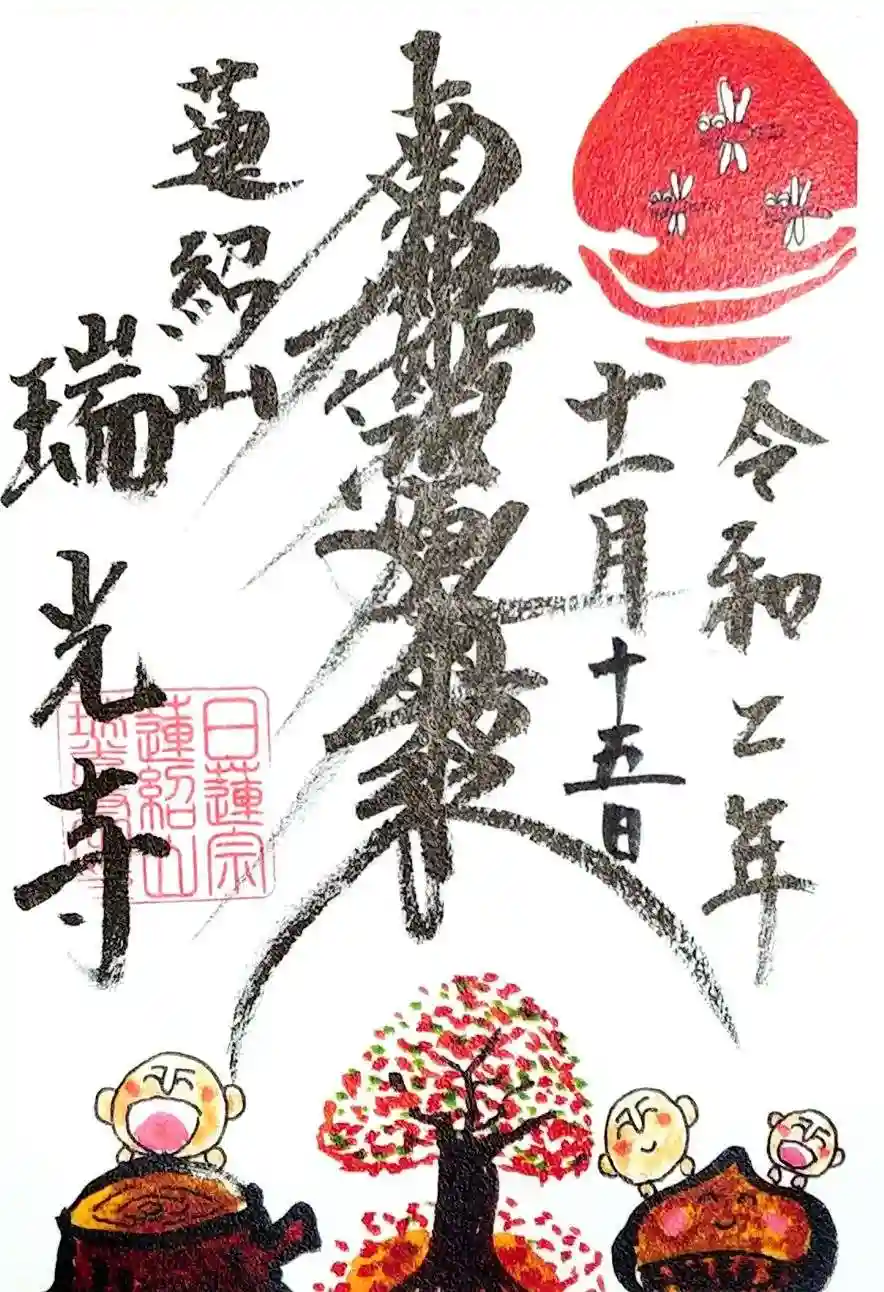 令和二年
十一月
十五日
南無妙法蓮華経
蓮紹山
瑞光寺
日蓮宗
蓮紹山
瑞光寺